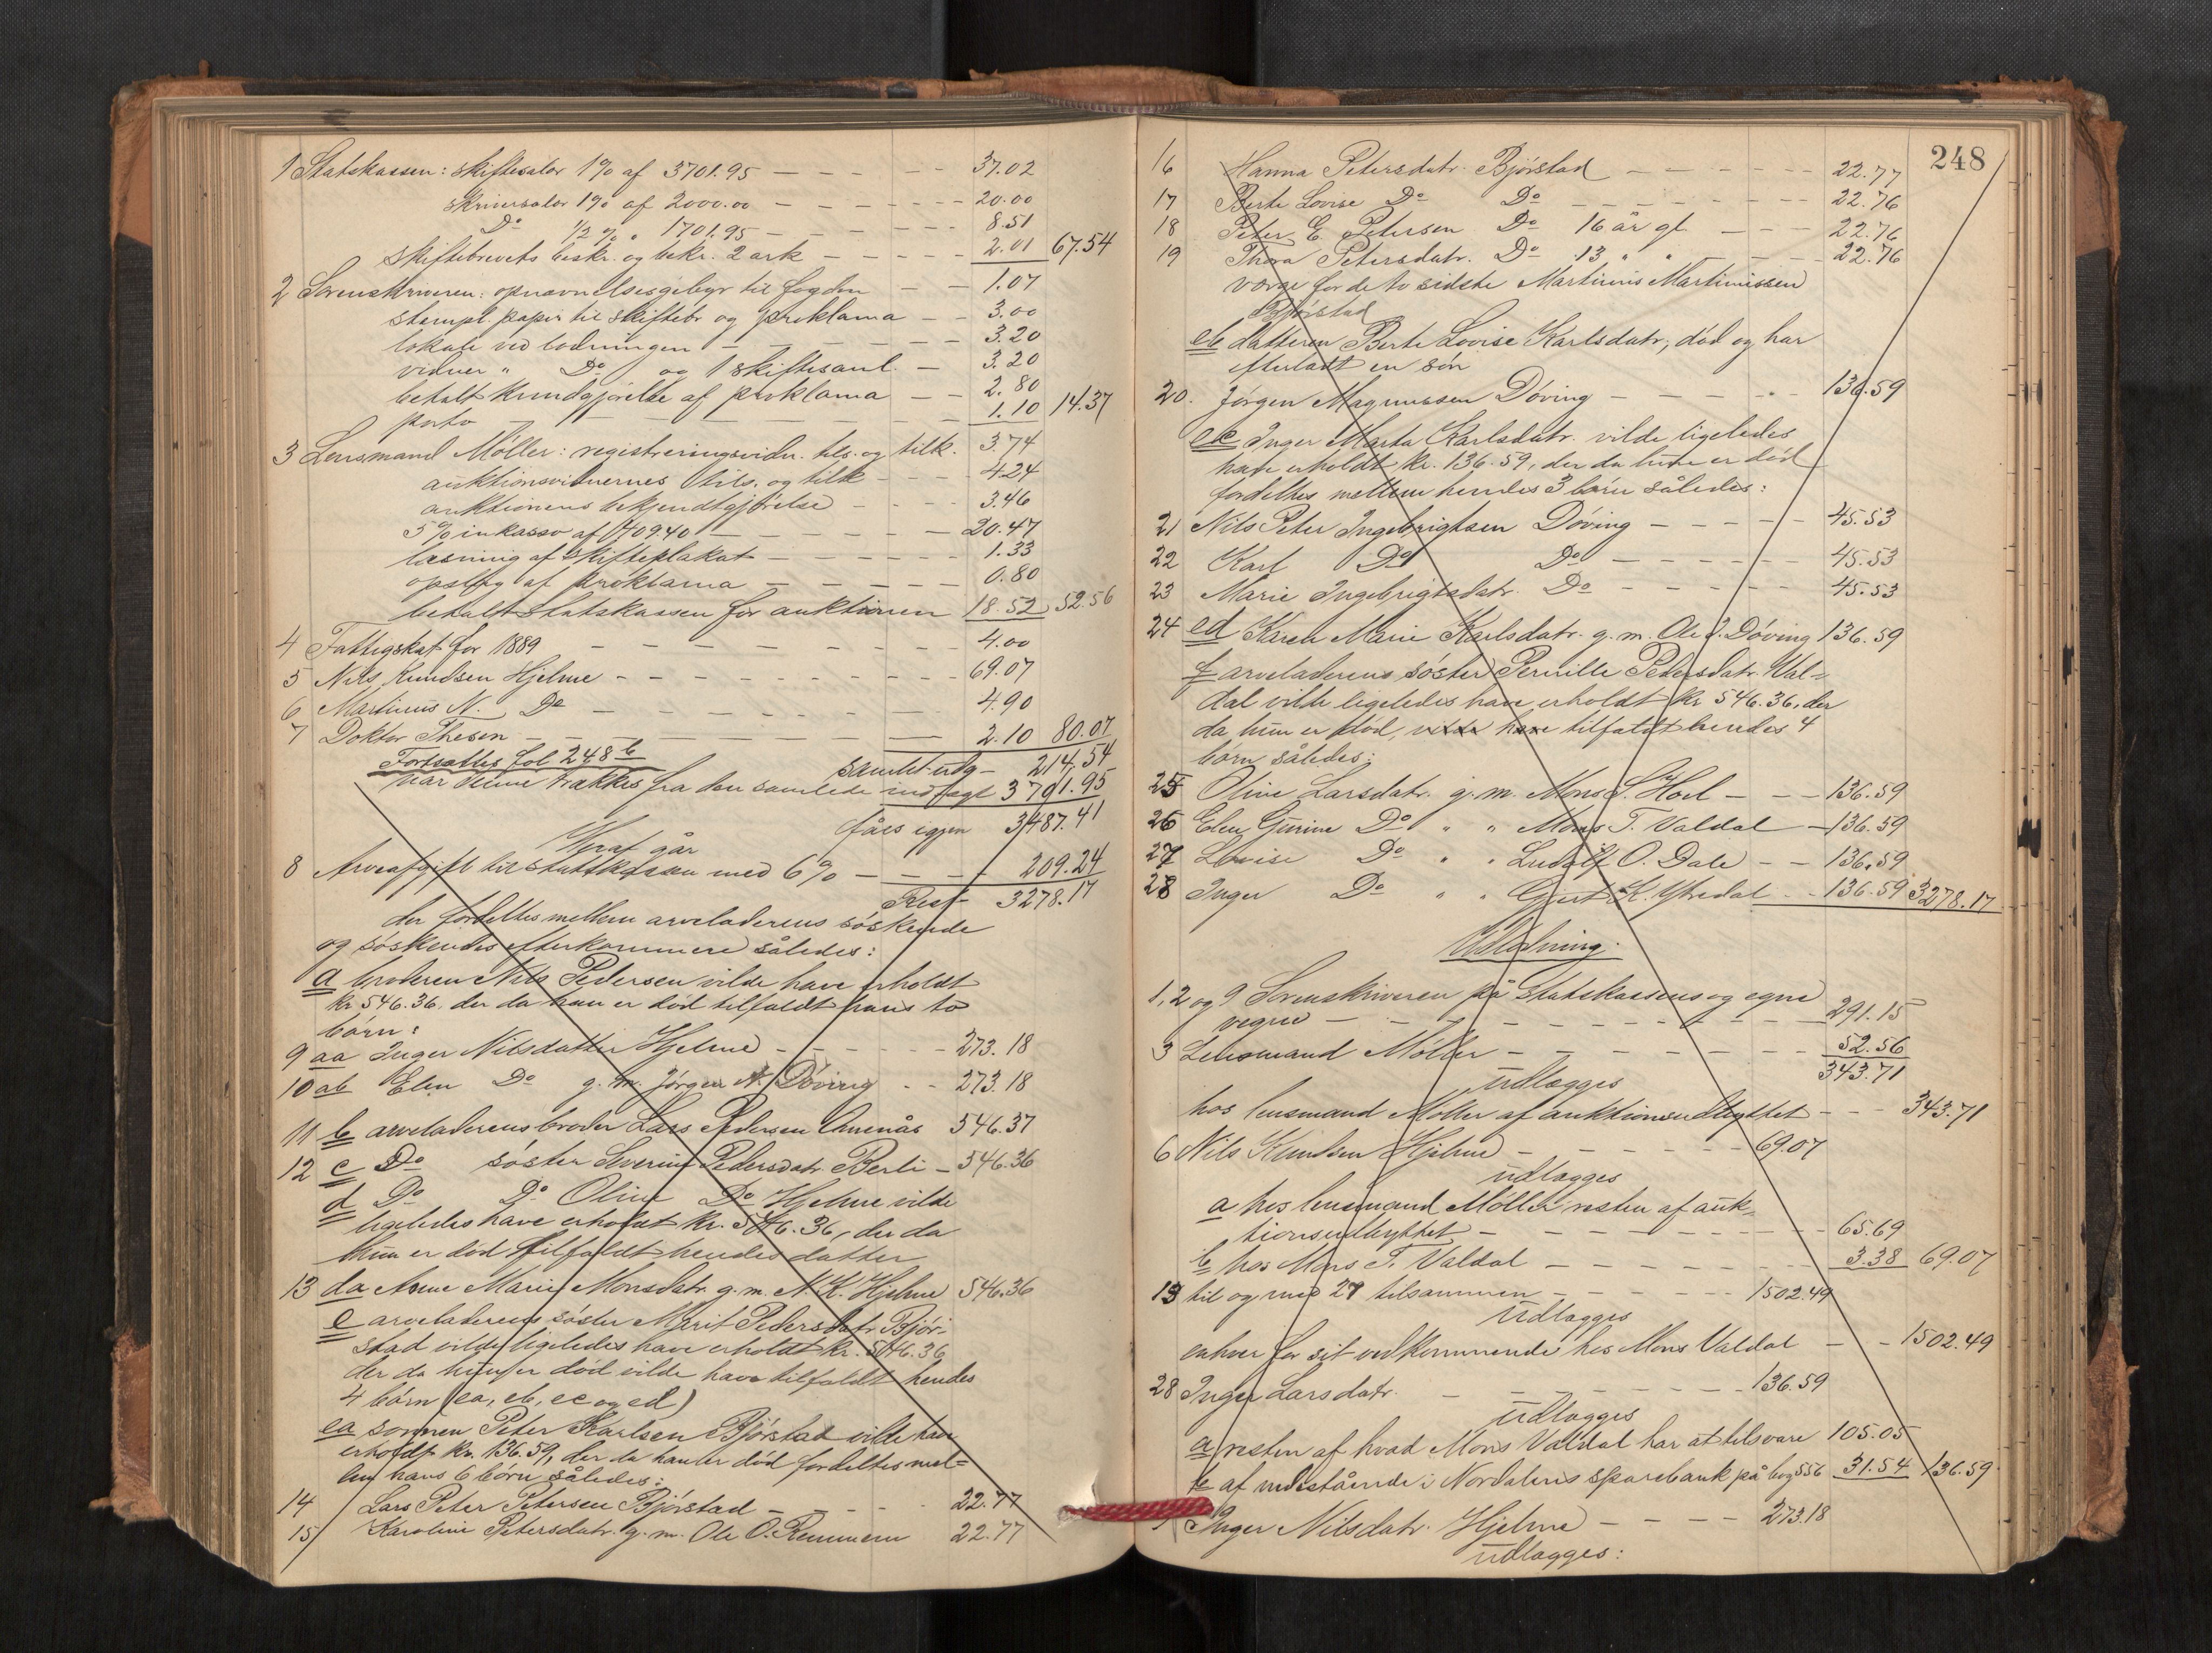 1 Statskassen: skiftesalær 1% af 3701.95 — — — — 37.02
skriversalær 1% af 2000.00 — — — — 20.00
Do ½ % " 1701.95 — — — — 8.51
skiftebrevets beskr. og bekr. 2 ark — — — — 2.01 67.54
2 Sorenskriveren: opnævnelsesgebyr til fogden — — 1.07
stempl. papir til skiftebr og proklama — — 3.00
lokale ved lodningen — — — — 3.20
vidner " Do og 1 skiftesaml. — 3.20
betalt kundgjørelse af proklama — — 2.80
porto — — — — 1.10 14.37
3 Lensmand Møller: registreringsvidn. tils. og tilk. 3.74
auktionsvidnernes tils. og tilk — — — 4.24
auktionens bekjendtgjørelse — — — 3.46
5% inkasso af 409.40 — — — — 20.47
læsning af skifteplakat — — — — 1.33
opslag af proklama — — — — 0.80
betalt Statskassen for auktionen 18.52 52.56
4 Fattigskat for 1889 — — — — 4.00
5 Nils Knudsen Hjelme — — — — 69.07
6 Martinus N. Do — — — — 4.90
7 Doktor Thesen — — — — 2.10 80.07
Fortsættes fol 248 b
samlet udg — 214.54
når denne trækkes fra den samlede indtægt 3701.95
fåes igjen 3487.41
Heraf går
8 Arveafgift til statskassen med 6% — — — 209.24
Rest 3278.17
der fordeltes mellem arveladerens søskende
og søskendes efterkommere således:
a broderen Nils Pedersen vilde have erholdt
kr 546.36. der da han er død tilfaldt hans to
børn:
9 aa Inger Nilsdatter Hjelme — — — — 273.18
10 ab Elen Do g. m. Jørgen N. Døving — — 273.18
11 b arveladerens broder Lars Pedersen Omenås 546.37
12 c Do søster Severine Pedersdatr. Berli — 546.36
d Do Do Oline Do Hjelme vilde
ligeledes have erholdt kr. 546.36, der da
hun er død tilfaldt hendes datter
13 da Anne Marie Monsdatr. g. m. N. K. Hjelme 546.36
e arveladerens søster Marit Pedersdatr Bjør-
stad vilde ligeledes have erholdt kr. 546.36
der da hun er død vilde have tilfaldt hendes
4 børn (ea, eb, ec og ed)
ea sønnen Peter Karlsen Bjørstad vilde have
erholdt kr. 136.59, der da han er død fordeltes mel=
lem hans 6 børn således:
14 Lars Peter Petersen Bjørstad — — — — 22.77
15 Karoline Petersdatr. g. m. Ole O. Remmem 22.77
248
16 Hanna Petersdatr. Bjørstad — — — — 22.77
17 Berte Lovise Do Do — — — — 22.76
18 Peter E Petersen Do 16 år gl — — — 22.76
19 Thora Petersdatr. Do 13 " " — — — 22.76
værge for de to sidste Martinus Martinussen
Bjørstad
eb datteren Berte Lovise Karlsdatr, død og har
efterladt en søn
20. Jørgen Magnussen Døving — — — — 136.59
ec Inger Marta Karlsdatr. vilde ligeledes
have erholdt kr. 136.59, der da hun er død
fordeltes mellem hendes 3 børn således:
21 Nils Peter Ingebrigtsen Døving — — — — 45.53
22 Karl Do Do — — — — 45.53
23 Marie Ingebrigtsdatr. Do — — — — 45.53
24 ed Karen Marie Karlsdatr. g. m. Ole J. Døving 136.59
f arveladerens søster Pernille Pedersdatr. Val=
dal vilde ligeledes have erholdt kr 546.36, der
da hun er død, vilde have tilfaldt hendes 4
børn således:
25 Oline Larsdatr. g. m. Mons S. Hoel — — 136.59
26 Elen Gurine Do " " Mons T. Valdal — 136.59
27 Lovise Do " " Ludolf O. Dale — — 136.59
28 Inger Do " " Gjert K. Ytredal — — 136.59 3278.17
Udlodning.
1, 2 og 9 Sorenskriveren på Statskassens og egne
vegne — — — — 291.15
3 Lensmand Møller — — — — 52.56
343.71
udlægges
hos lensmand Møller af auktionsudbyttet — — — 343.71
6 Nils Knudsen Hjelme — — — — 69.07
udlægges
a hos lensmand Møller resten af auk-
tionsudbyttet — — — — 65.69
b hos Mons T. Valdal — — — — 3.38 69.07
13 til og med 27 tilsammen — — — — 1502.49
udlægges
enhver for sit vedkommende hos Mons Valdal — — 1502.49
28 Inger Larsdatr. — — — — 136.59
udlægges
a resten af hvad Mons Valdal har at tilsvare 105.05
b af indestående i Nordalens sparebank på bog 556 31.54 136.59
9 Inger Nilsdatr. Hjelme — — — — 273.18
udlægges: